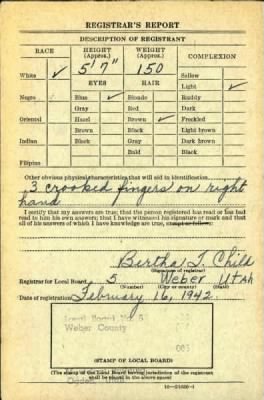 REGISTRAR'S REPORT
DESCRIPTION OF REGISTRANT
RACE HEIGHT (Approx.) WEIGHT (Approx.) COMPLEXION
5'7" 150
White ✓ EYES HAIR Sallow
Light ✓
Negro Blue ✓ Blonde Ruddy
Gray Red Dark
Oriental Hazel Brown ✓ Freckled
Brown Black Light brown
Indian Black Gray Dark brown
Bald Black
Filipino
Other obvious physical characteristics that will aid in identification.
3 crooked fingers on right
hand
I certify that my answers are true; that the person registered has read or has had
read to him his own answers; that I have witnessed his signature or mark and that
all of his answers of which I have knowledge are true, except as follows:
Bertha T. Child
(Signature of registrar)
Registrar for Local Board 5 Weber Utah
(Number) (City or county) (State)
Date of registration February 16, 1942
Local Board No. 5
Weber County
(STAMP OF LOCAL BOARD)
(The stamp of the Local Board having jurisdiction of the registrant
shall be placed in the above space)